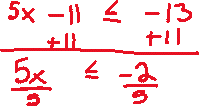 5x - 11 ≤ -13
+11 +11
5x/5 ≤ -2/5